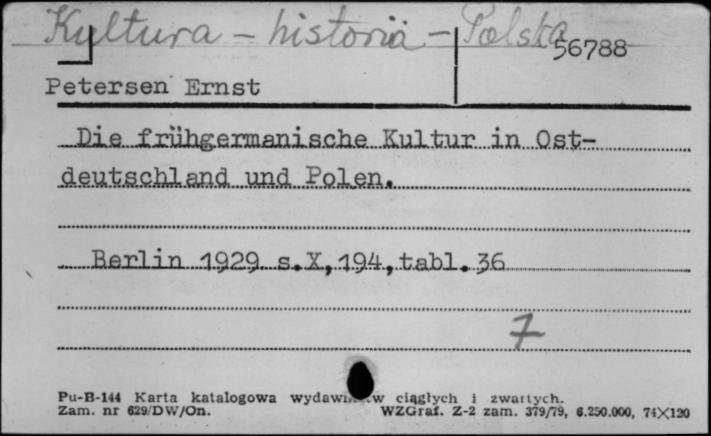 Kultura - historia - Polska
56788
Petersen Ernst
Die frühgermanische Kultur in Ost-
deutschland und Polen.
Berlin 1929 s.X,194,tabl.36
7
Pu-B-144 Karta katalogowa wydawnictw ciągłych i zwartych.
Zam. nr 629/DW/On. WZGraf. Z-2 zam. 379/79, 6.250.000, 74X120